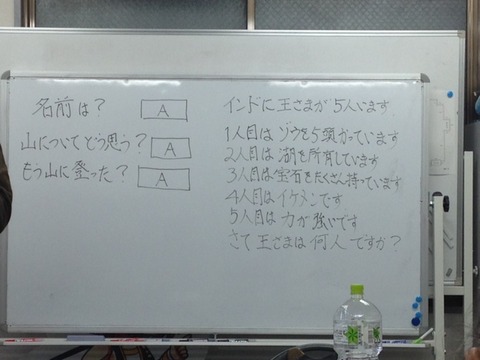 名前は? A
山についてどう思う? A
もう山に登った? A
インドに王さまが5人います。
1人目はゾウを5頭かっています
2人目は湖を所有しています
3人目は宝石をたくさん持っています
4人目はイケメンです
5人目は力が強いです
さて王さまは何人ですか?